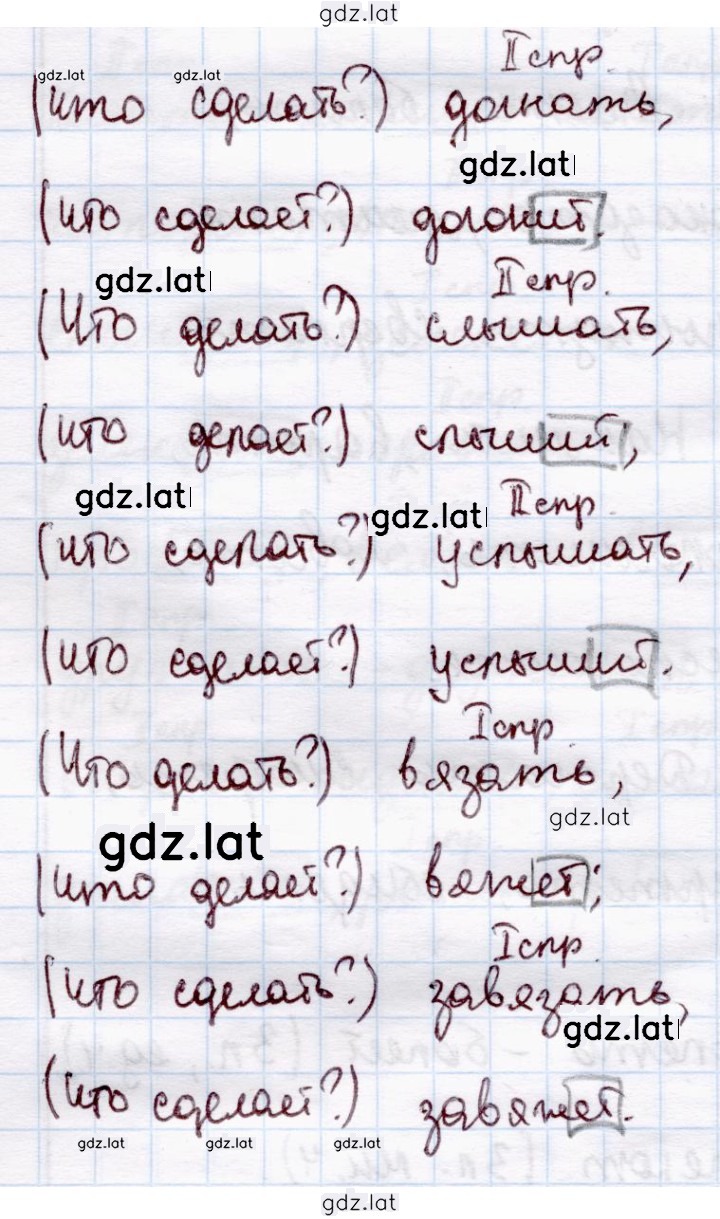 gdz.lat
gdz.lat gdz.lat II спр.
(что сделать?) догнать,
gdz.lat
(что сделает?) догонит.
gdz.lat II спр.
(Что делать?) слышать,
(что делает?) слышит,
gdz.lat gdz.lat II спр.
(что сделать?) услышать,
(что сделает?) услышит.
I спр.
(Что делать?) вязать,
gdz.lat
gdz.lat
(что делает?) вяжет;
I спр.
(что сделать?) завязать,
gdz.lat
(что сделает?) завяжет.
gdz.lat gdz.lat gdz.lat
gdz.lat